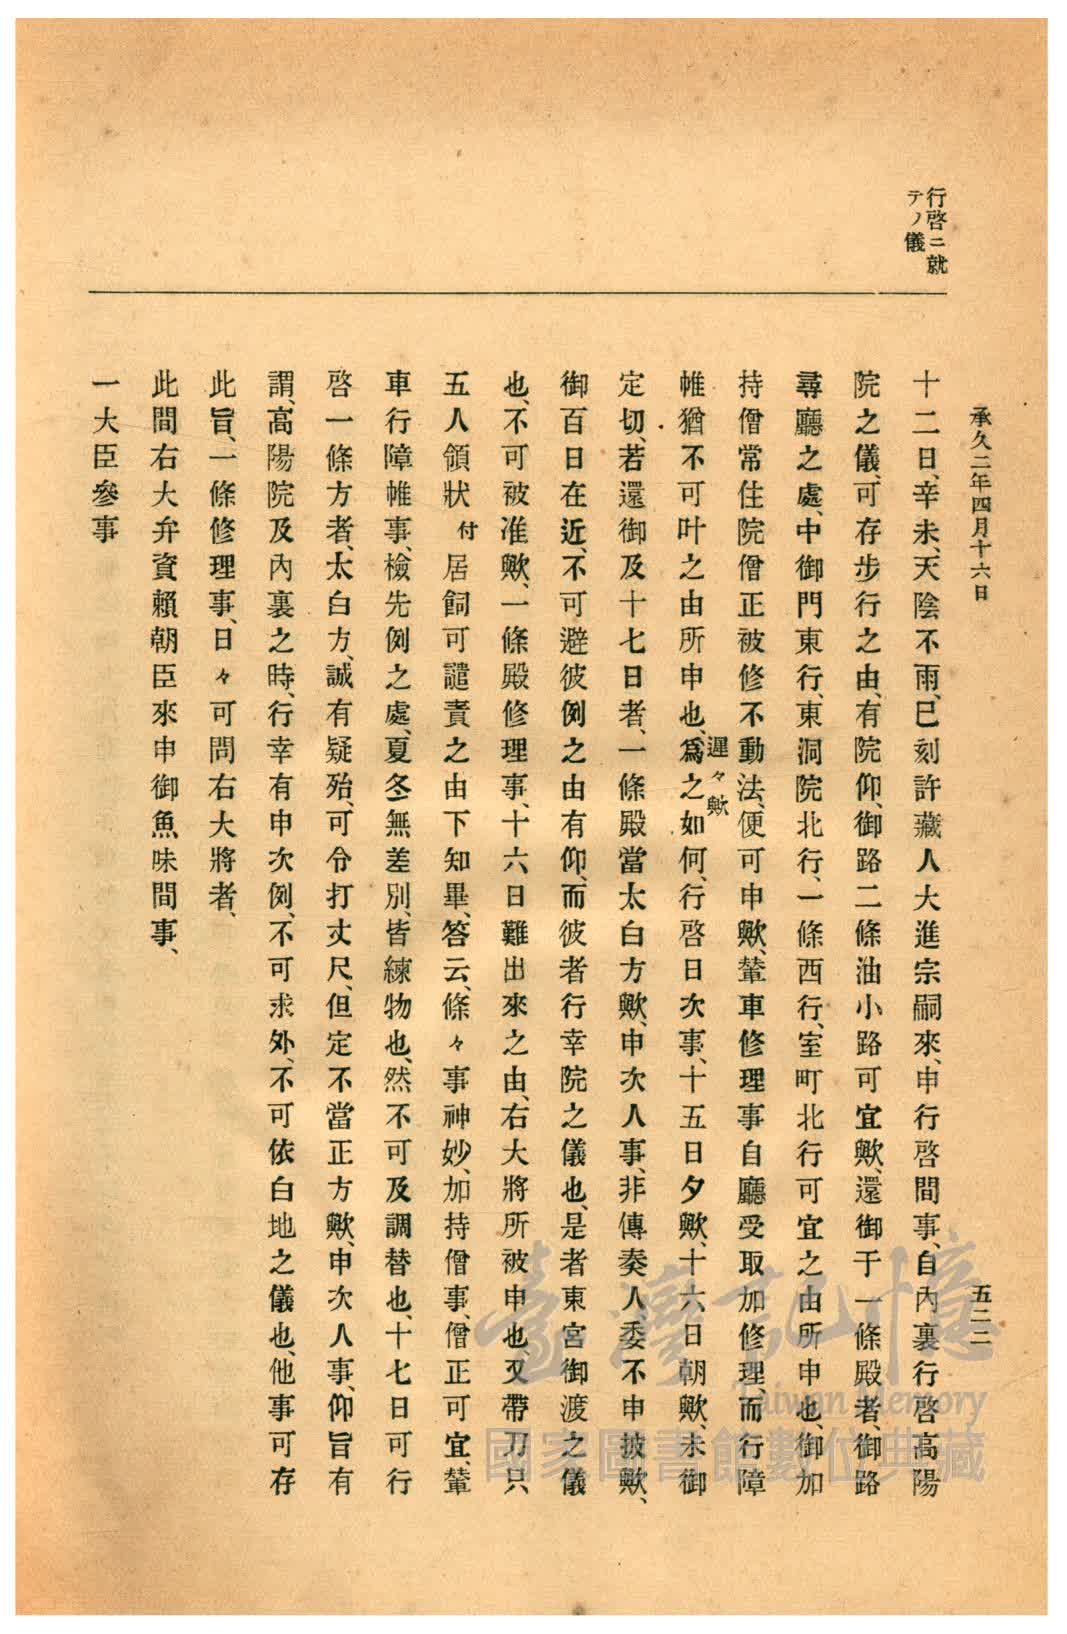 行啓ニ就
テノ儀
承久二年四月十六日
五二二
十二日、辛未、天陰不雨、巳刻許藏人大進宗嗣來、申行啓間事、自內裏行啓高陽
院之儀、可存步行之由、有院仰、御路二條油小路可宜歟、還御于一條殿者、御路
尋廳之處、中御門東行、東洞院北行、一條西行、室町北行可宜之由所申也、御加
持僧常住院僧正被修不動法、便可申歟、輦車修理事自廳受取加修理、而行障
帷猶不可叶之由所申也、爲之如何、行啓日次事、十五日夕歟、十六日朝歟、未御
遲々歟
定切、若還御及十七日者、一條殿當太白方歟、申次人事、非傳奏人委不申披歟、
御百日在近、不可避彼例之由有仰、而彼者行幸院之儀也、是者東宮御渡之儀
也、不可被准歟、一條殿修理事、十六日難出來之由、右大將所被申也又帶刀只
五人領狀付居飼可譴責之由下知畢、答云、條々事神妙、加持僧事、僧正可宜、輦
車行障帷事、檢先例之處、夏冬無差別、皆練物也、然不可及調替也、十七日可行
啓一條方者、太白方、誠有疑殆、可令打丈尺、但定不當正方歟、申次人事、仰旨有
謂、高陽院及內裏之時、行幸有申次例、不可求外、不可依白地之儀也、他事可存
此旨、一條修理事、日々可問右大將者、
此間右大弁資賴朝臣來申御魚味間事、
一大臣參事
臺灣記憶
Taiwan Memory
國家圖書館數位典藏